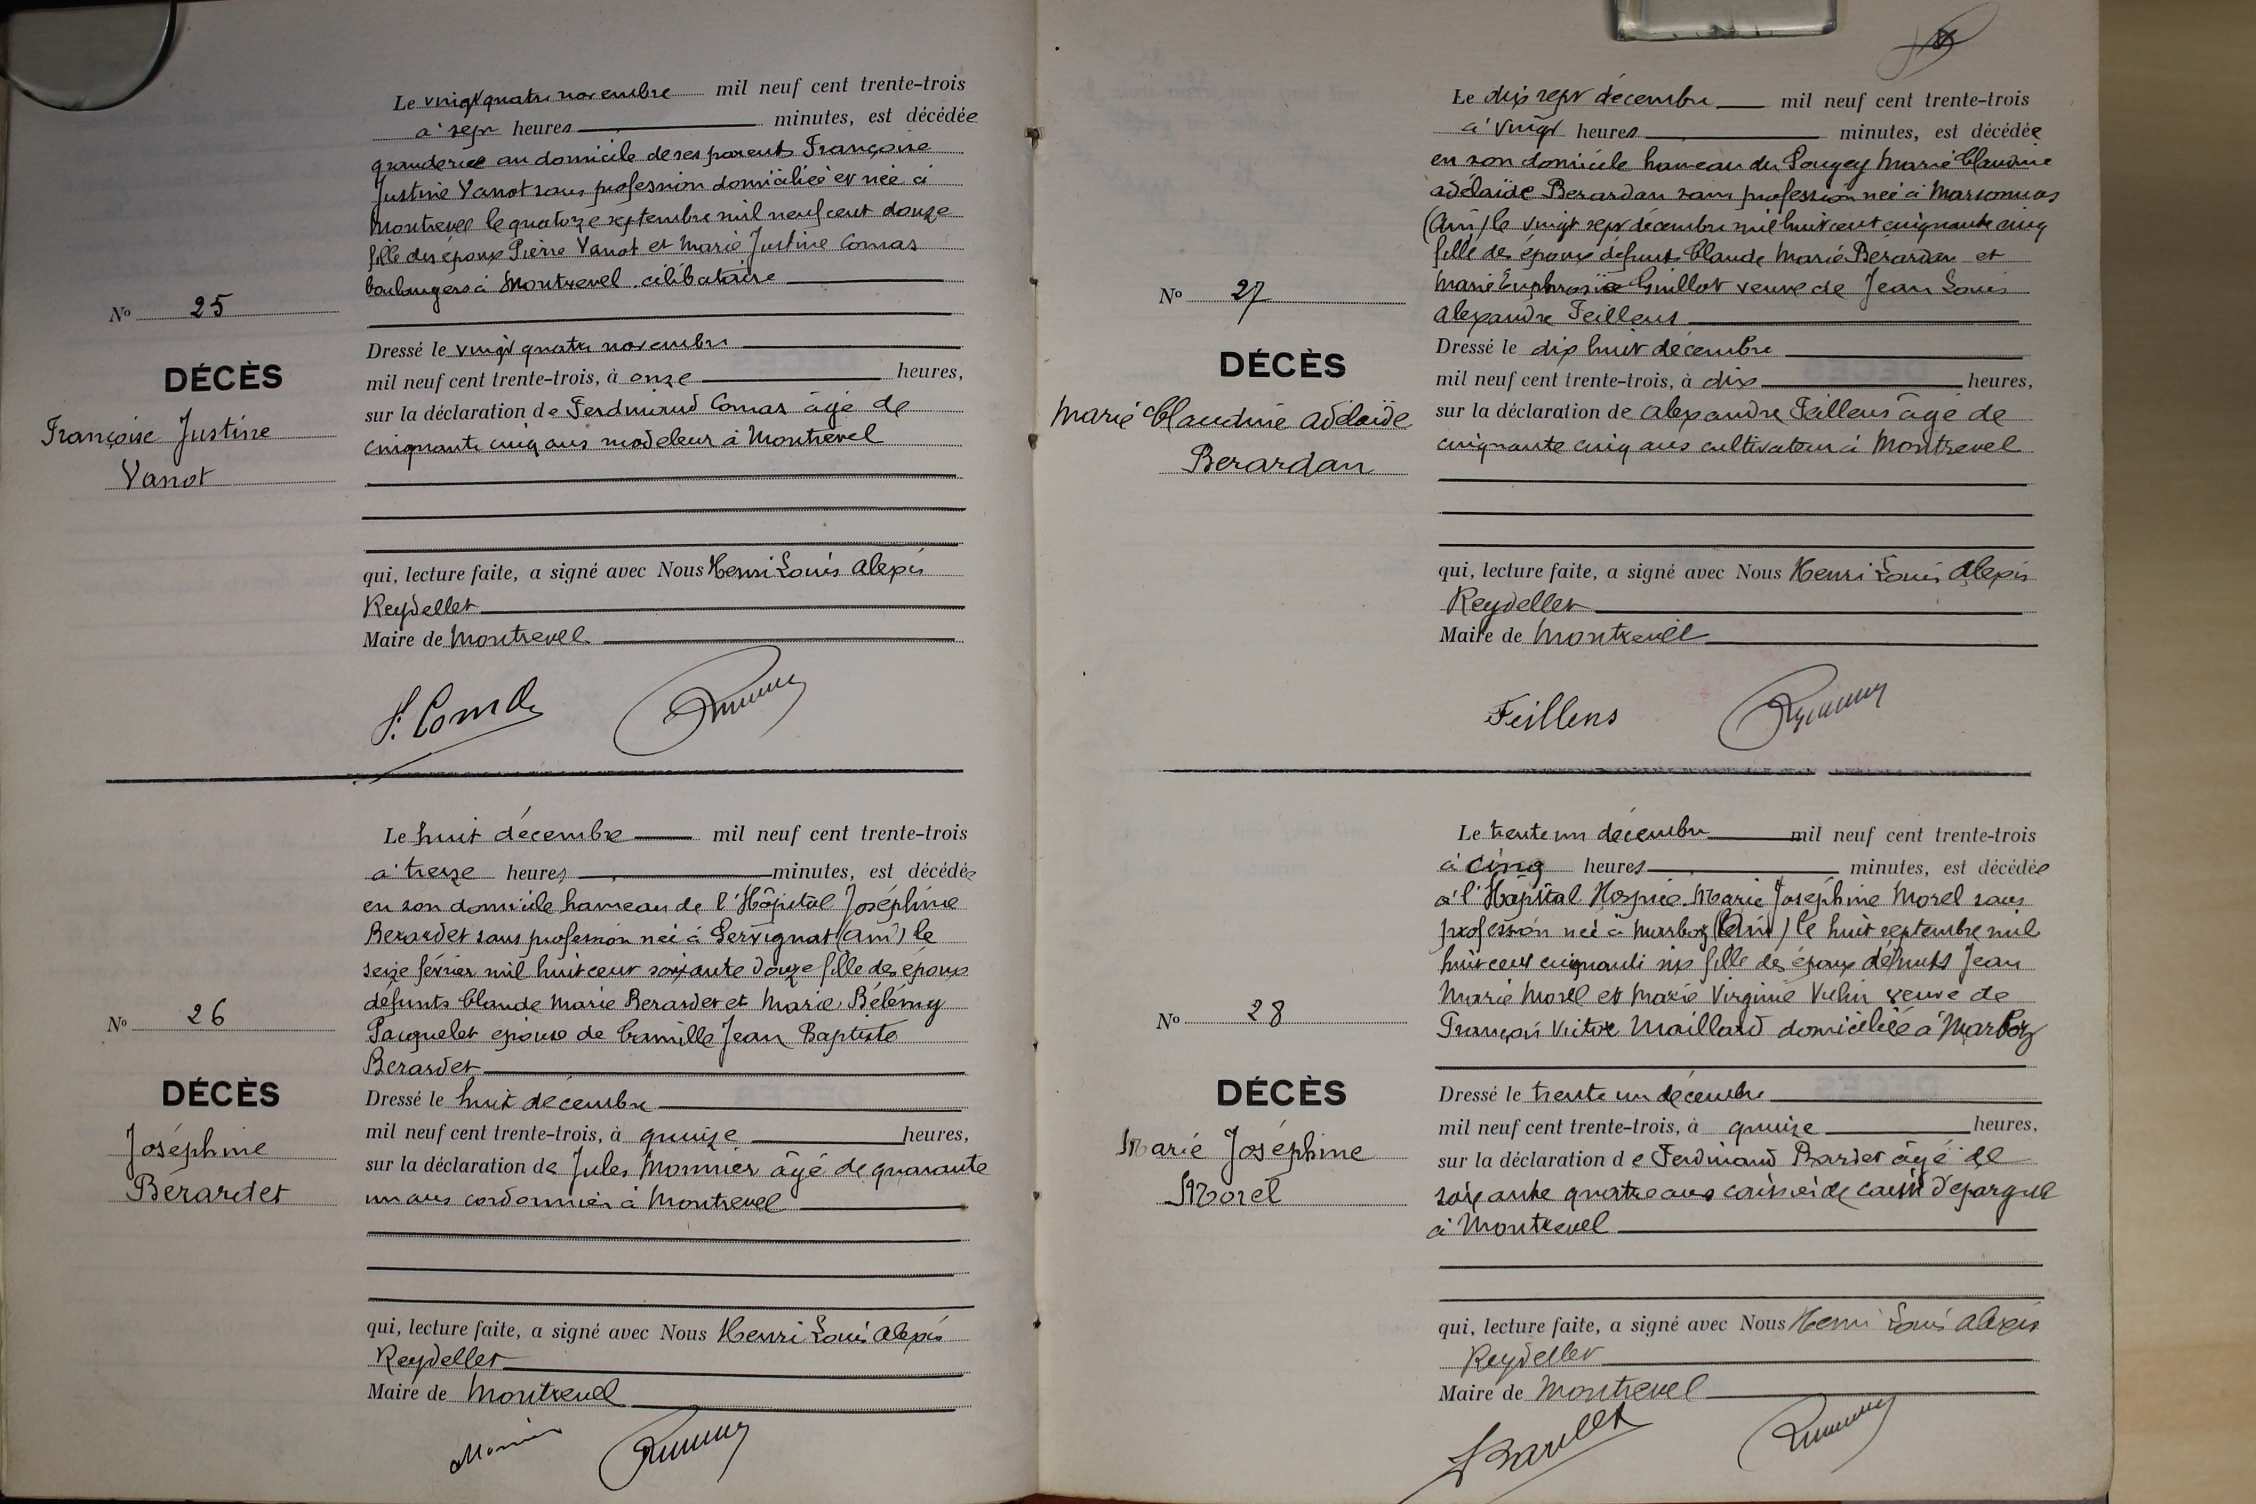 Le vingt quatre novembre mil neuf cent trente-trois
à sept heures minutes, est décédée
au domicile de ses parents Françoise
Justine Vanot sans profession domiciliée et née à
Montrevel le quatorze septembre mil neuf cent douze
fille des époux Pierre Vanot et Marie Justine Comas
boulangers à Montrevel célibataire
No 25
DÉCÈS
Françoise Justine
Vanot
Dressé le vingt quatre novembre
mil neuf cent trente-trois, à onze heures,
sur la déclaration de Ferdinand Comas âgé de
cinquante cinq ans modeleur à Montrevel
qui, lecture faite, a signé avec Nous Henri Louis Alexis
Reydellet
Maire de Montrevel
F. Comas
Le huit décembre mil neuf cent trente-trois
à treize heures minutes, est décédée
en son domicile hameau de l'Hôpital Joséphine
Berardet sans profession née à Servignat (Ain) le
seize février mil huit cent soixante douze fille des époux
défunts Claude Marie Berardet et Marie
épouse de Camille Jean Baptiste
Berardet
No 26
DÉCÈS
Joséphine
Bérardet
Dressé le huit décembre
mil neuf cent trente-trois, à quinze heures,
sur la déclaration de Jules Monnier âgé de quarante
un ans cordonnier à Montrevel
qui, lecture faite, a signé avec Nous Henri Louis Alexis
Reydellet
Maire de Montrevel
Le dix sept décembre mil neuf cent trente-trois
à vingt heures minutes, est décédée
en son domicile hameau du Sougey Marie Claudine
Adélaïde Berardan sans profession née à Marsonnas
(Ain) le vingt sept décembre mil huit cent cinquante cinq
fille des époux défunts Claude Marie Berardan et
Marie Euphrosine Guillot veuve de Jean Louis
Alexandre Feillens
No 27
DÉCÈS
Marie Claudine Adélaïde
Berardan
Dressé le dix huit décembre
mil neuf cent trente-trois, à dix heures,
sur la déclaration de Alexandre Feillens âgé de
cinquante cinq ans cultivateur à Montrevel
qui, lecture faite, a signé avec Nous Henri Louis Alexis
Reydellet
Maire de Montrevel
Feillens
Le trente un décembre mil neuf cent trente-trois
à cinq heures minutes, est décédée
à l'Hôpital Hospice Marie Joséphine Morel sans
profession née à Marboz (Ain) le huit septembre mil
huit cent cinquante six fille des époux défunts Jean
Marie Morel et Marie Virginie veuve de
François Victor Maillard domiciliée à Marboz
No 28
DÉCÈS
Marie Joséphine
Morel
Dressé le trente un décembre
mil neuf cent trente-trois, à quinze heures,
sur la déclaration de Ferdinand âgé de
soixante quatre ans caisse d'épargne
à Montrevel
qui, lecture faite, a signé avec Nous Henri Louis Alexis
Reydellet
Maire de Montrevel